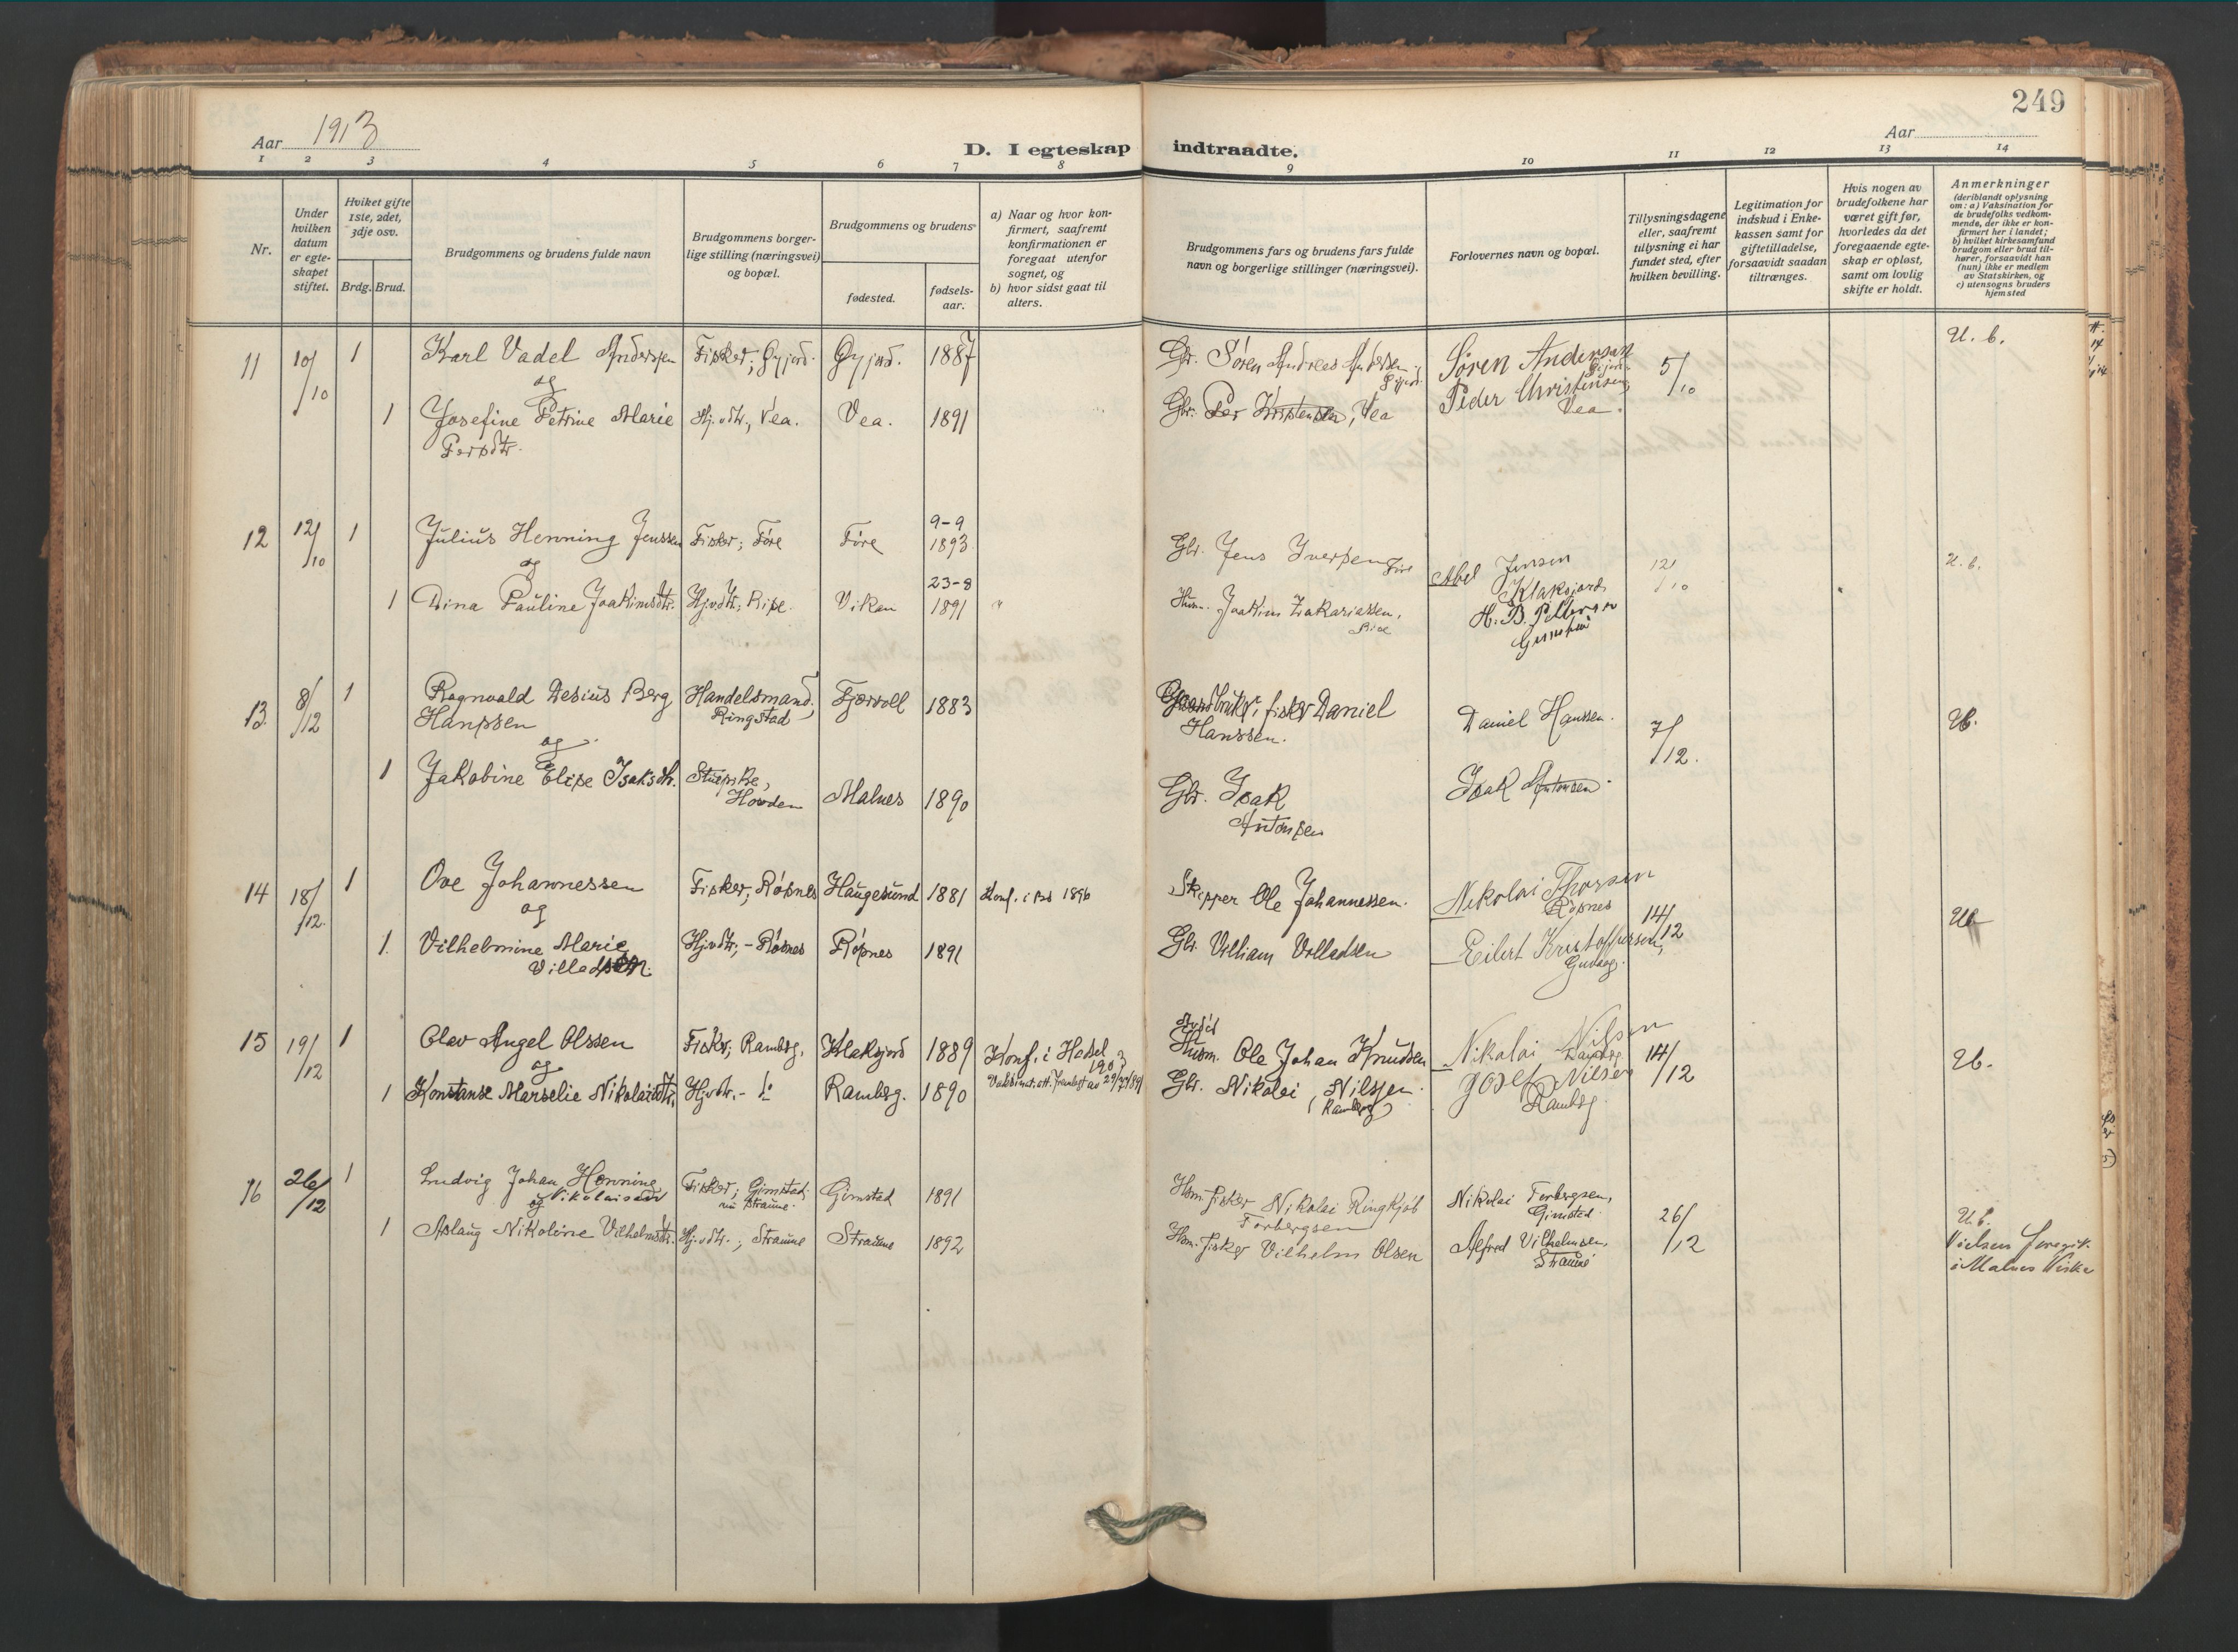 249
Aar 1913
D. I egteskap indtraadte.
Aar
1 2 3 4 5 6 7 8 9 10 11 12 13 14
Nr.
Under hvilken datum er egteskapet stiftet.
Hviket gifte 1ste, 2det, 3dje osv.
Brdg. Brud.
Brudgommens og brudens fulde navn
Brudgommens borgerlige stilling (næringsvei) og bopæl.
Brudgommens og brudens
fødested.
fødselsaar.
a) Naar og hvor konfirmert, saafremt konfirmationen er foregaat utenfor sognet, og
b) hvor sidst gaat til alters.
Brudgommens fars og brudens fars fulde navn og borgerlige stillinger (næringsvei).
Forlovernes navn og bopæl.
Tillysningsdagene eller, saafremt tillysning ei har fundet sted, efter hvilken bevilling.
Legitimation for indskud i Enkekassen samt for giftetilladelse, forsaavidt saadan tiltrænges.
Hvis nogen av brudefolkene har været gift før, hvorledes da det foregaaende egteskap er opløst, samt om lovlig skifte er holdt.
Anmerkninger (deriblandt oplysning om: a) Vaksination for de brudefolks vedkommende, der ikke er konfirmert her i landet; b) hvilket kirkesamfund brudgom eller brud tilhører, forsaavidt han (hun) ikke er medlem av Statskirken, og c) utensogns bruders hjemsted
11 10/10 1 Karl Vadel Anderssen Fisker; Gyjord. Gyjord. 1887 Gbr. Søren Andreas Andersen, Gyjord. Søren Andersen 5/10 U. b.
og
1 Josefine Petrine Marie Hj.v.dtr., Vea. Vea. 1891 Gbr. Per Kristensen, Vea Peder Christensen, Vea.
Persdtr.
12 12/10 1 Julius Henning Jenssen Fisker; Føre Føre 9-9 1893 Gbr. Jens Iversen Føre Abel Jensen Klaksjord 12/10 U. b.
og
1 Dina Pauline Joakimsdtr. Hjvdtr; Ripe. Viken 23-8 1891 Husm. Joakim Zakariassen, H. B. Pettersen
13 8/12 1 Ragnvald Desius Berg Handelsmand, Fjærvoll 1883 Gaardbruker, fisker Daniel Daniel Hanssen. 7/12. Ub.
Hanssen Ringstad Hanssen.
og
1 Jakobine Elise Isaksdtr. Stuepike, Hovden Malnes 1890 Gbr. Isak Antonsen Isak Antonsen
14 18/12. 1 Ove Johannessen Fisker, Røsnes Haugesund 1881 Konf. i 1896 Skipper Ole Johannessen. Nikolai Thorsen Røsnes 14/12 Ub
og
1. Vilhelmine Marie Hjvdtr; - Røsnes Røsnes 1891 Gbr. Villiam Volladsen Eilert Kristoffersen,
15 19/12 1 Olav Angel Olssen Fisker, Ramberg, Klaksjord 1889 Konf. i Hadsel 1903 Husm. Ole Johan Knudsen Nikolai Nilsen 14/12 Ub.
og
1 Konstanse Marselie Nikolaisdtr. Hjvdtr. - Ramberg. 1890 Gbr. Nikolai Nilssen (Ramberg) Josef Nilsen Ramberg
16 26/12 1 Ludvig Johan Henning Fisker; Gimstad; nu Straume. Gimstad 1891 Husm. fisker Nikolai Ringkjøb Nikolai Torbergsen, Gimstad. 26/12 U. b.
og Nikolaisen Torbergsen
1 Aslaug Nikoline Vilhelmsdtr. Hj.vdtr.; Straume Straume 1892 Husm. fisker Vilhelm Olsen Alfred Vilhelmsen, Straume Vielsen foregik i Malnes Kirke